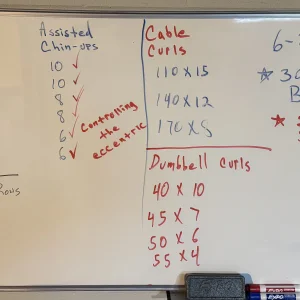 Assisted
Chin-ups
10 ✓
10 ✓
8 ✓
8 ✓
6 ✓
6 ✓
Controlling
the
eccentric
Cable
Curls
110 x 15
140 x 12
170 x 8
Dumbbell Curls
40 x 10
45 x 7
50 x 6
55 x 4
6-
☆ 30
★
EXPO